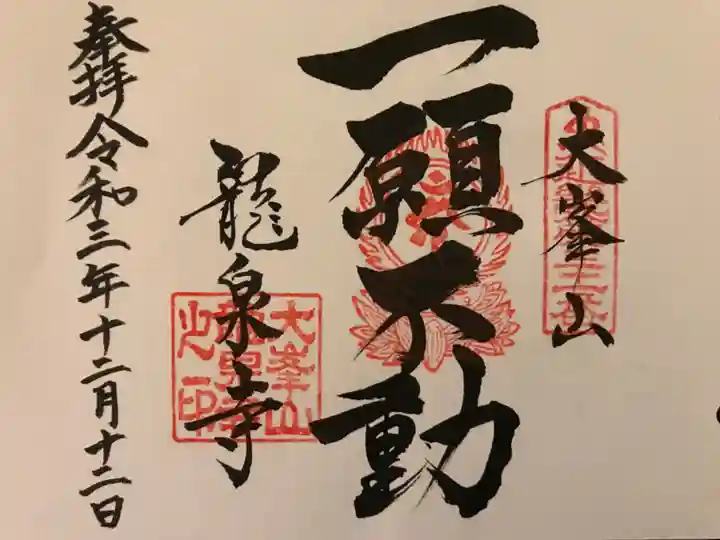 大峯山
一願不動
龍泉寺
大峯山
龍泉寺
之印
奉拝 令和三年十二月十二日